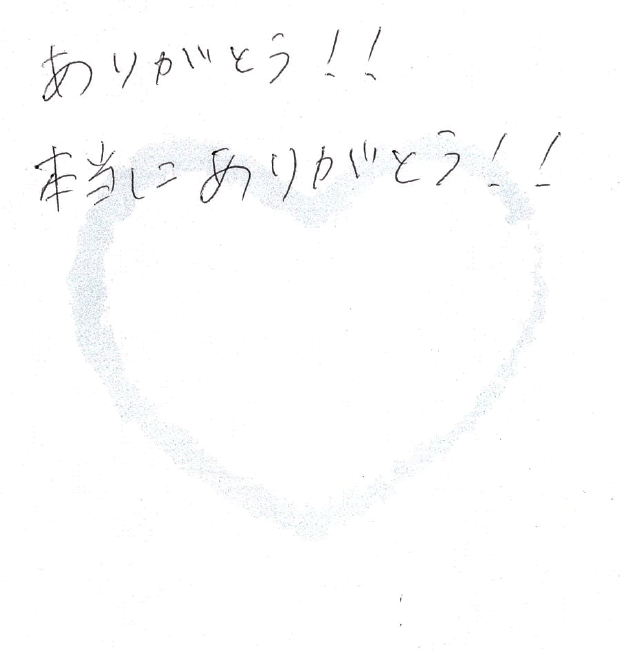 ありがとう！！
本当にありがとう！！